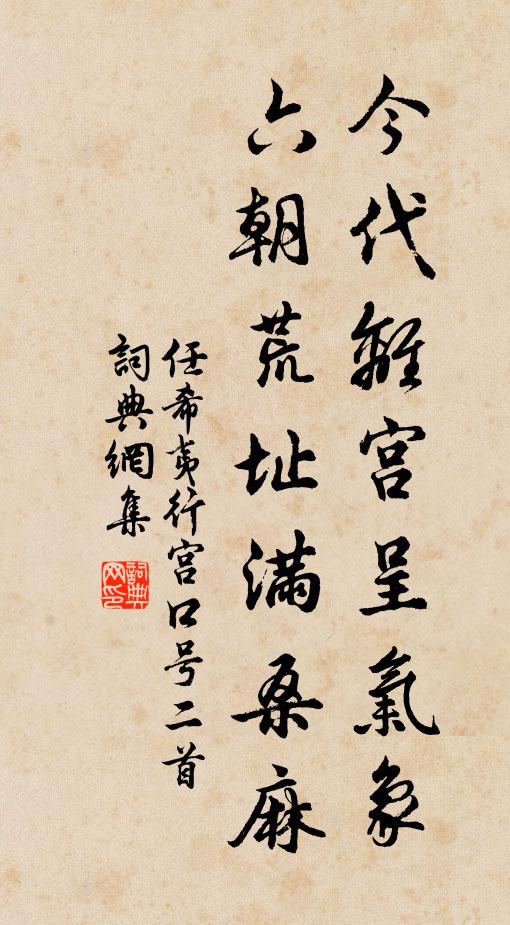 今代離宫呈氣象
六朝荒址滿桑麻
任希夷行宫口号二首
詞典網集
詞典网印